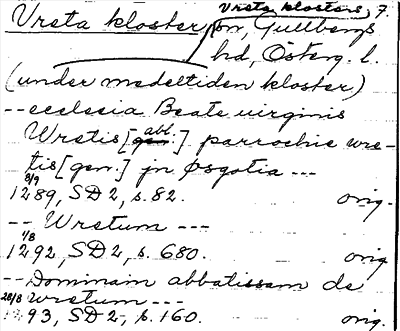 Vreta klosters, 7.
Vreta kloster, sn, Gullbergs
hd, Österg. l.
(under medeltiden kloster)
-- ecclesia Beate uirginis
Wretis [gen. abl.] parrochie wre-
tis [gen.] jn øsgotia ---
8/9
1289, SD 2, s. 82. orig.
-- Wretum ---
1/8
1292, SD 2, s. 680. orig
-- Dominam abbatissam de
wretum ---
28/8
1293, SD 2, s. 160. orig.